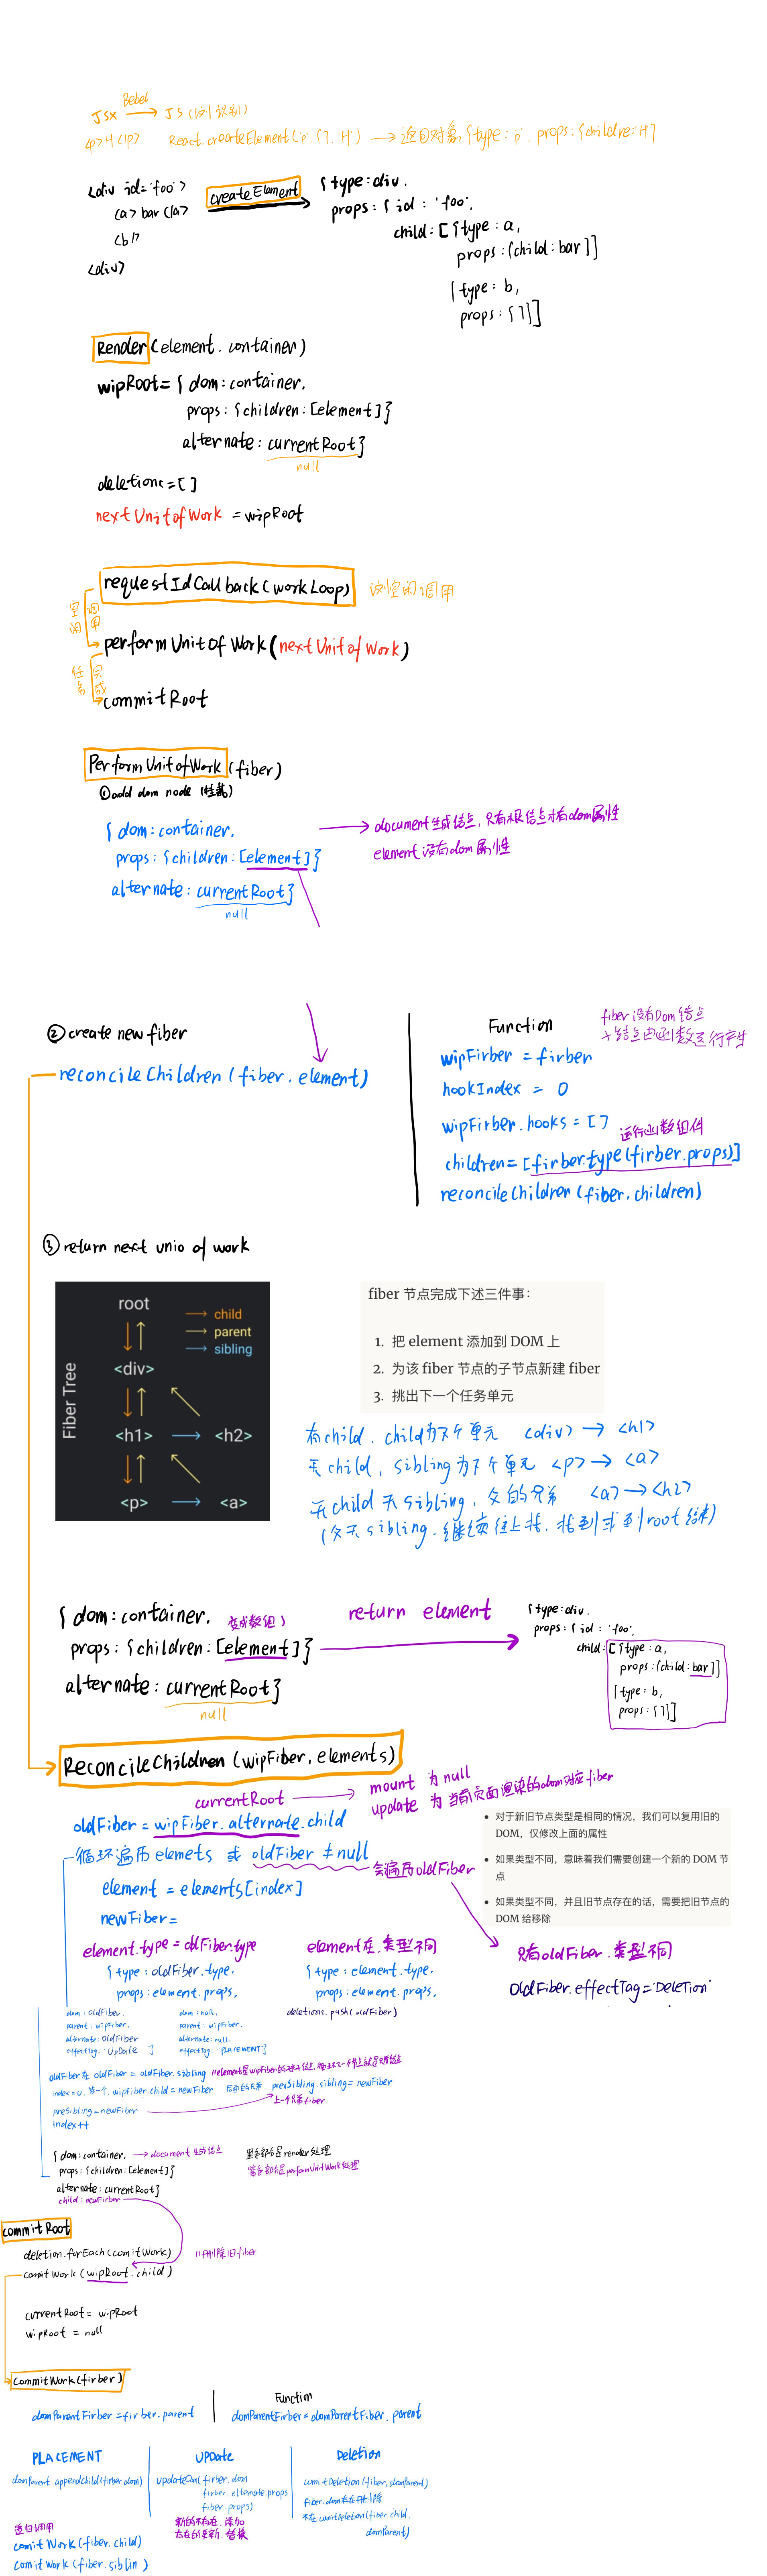 Bebel
JSX → JS (浏识别)
<p>H</p> React.createElement('p',{},'H') → 返回对象{type:'p', props:{childre:H}
<div id='foo'>
<a>bar</a>
<b/>
<div>
createElement
{type:div,
props:{id:'foo',
child:[{type:a,
props:{child:bar}]
{type:b,
props:{}}]
Render(element.container)
wipRoot={dom:container,
props:{children:[element]}
alternate:currentRoot}
null
deletion=[]
nextUnitofWork=wipRoot
requestIdCallback(workLoop) 浏空闲调用
空闲调用
performUnitOfWork(nextUnitofWork)
任务完成
commitRoot
PerformUnitofWork(fiber)
①add dom node (挂载)
{dom:container,
props:{children:[element]}
alternate:currentRoot}
null
→ document生成结点,只有根结点才有dom属性
element没有dom属性
②create new fiber
reconcileChildren(fiber,element)
Function
fiber没有Dom结点
子结点由函数运行产生
wipFirber=firber
hookIndex=0
wipFirber.hooks=[]
运行函数组件
children=[firber.type(firber.props)]
reconcileChildren(fiber,children)
③return next unio of work
Fiber Tree
root
→ child
→ parent
→ sibling
<div>
<h1> → <h2>
<p> → <a>
fiber 节点完成下述三件事：
1. 把 element 添加到 DOM 上
2. 为该 fiber 节点的子节点新建 fiber
3. 挑出下一个任务单元
有child,child为下个单元 <div>→<h1>
无child,sibling为下个单元 <p>→<a>
无child无sibling,父的兄弟 <a>→<h2>
(父无sibling,继续往上找,找到或到root结束)
{dom:container, 变成数组
props:{children:[element]}
alternate:currentRoot}
null
return element
{type:div,
props:{id:'foo',
child:[{type:a,
props:{child:bar}]
{type:b,
props:{}}]
ReconcileChildren(wipFiber,elements)
currentRoot → mount 为null
update 为当前页面渲染的dom对应fiber
oldFiber=wipFiber.alternate.child
循环遍历elemets 或 oldFiber≠null
会遍历oldFiber
element=elements[index]
newFiber=
• 对于新旧节点类型是相同的情况，我们可以复用旧的 DOM，仅修改上面的属性
• 如果类型不同，意味着我们需要创建一个新的 DOM 节点
• 如果类型不同，并且旧节点存在的话，需要把旧节点的 DOM 给移除
element.type=oldFiber.type
{type:oldFiber.type,
props:element.props,
dom:oldFiber,
parent:wipFiber,
alternate:oldFiber
effectTag:"UpDate"}
element在,类型不同
{type:element.type,
props:element.props,
dom:null,
parent:wipFiber,
alternate:null,
effectTag:"PLACEMENT"}
deletions.push(oldFiber)
只有oldFiber.类型不同
oldFiber.effectTag='Deletion'
oldFiber在 oldFiber=oldFiber.sibling
index=0,第一个,wipFiber.child=newFiber 后面的兄弟 prevSibling.sibling=newFiber
preSibling=newFiber
上一个兄弟fiber
index++
{dom:container, → document生成结点
props:{children:[element]}
alternate:currentRoot}
child:newFirber
黑色部分是render处理
紫色部分是performUnitWork处理
CommitRoot
deletion.forEach(comitWork) //删除旧fiber
comitWork(wipRoot.child)
currentRoot=wipRoot
wipRoot=null
CommitWork(firber)
domParentFirber=firber.parent
Function
domParentFirber=domParentFiber.parent
PLACEMENT
domParent.appendChild(firber.dom)
UPDate
updateDom(firber.dom
firber.alternate.props
fiber.props)
新的不存在,添加
Deletion
comitDeletion(fiber,domParent)
fiber.dom存在 删除
不在comitDeletion(fiber.child,
domParent)
递归调用
comitWork(fiber.child)
comitWork(fiber.siblin)